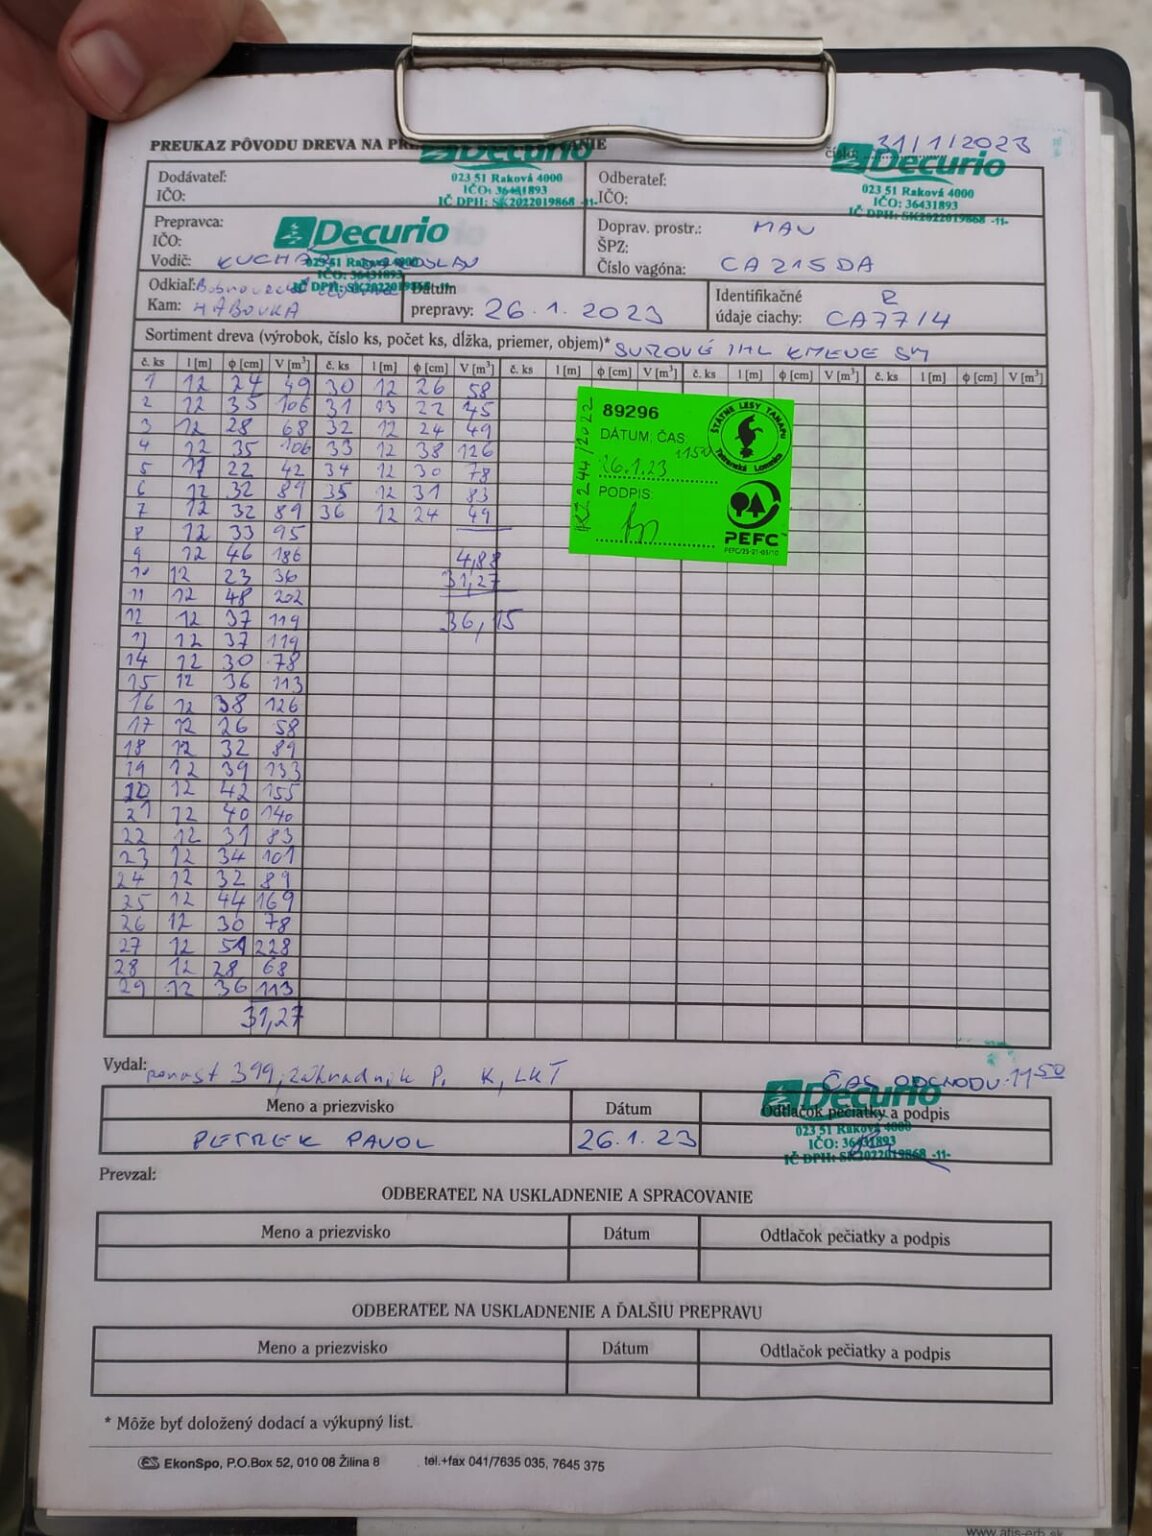 PREUKAZ PÔVODU DREVA NA
číslo 31/1/2023
Decurio
023 51 Raková 4000
IČO: 36431893
IČ DPH: SK2022019868 -11-
Decurio
023 51 Raková 4000
IČO: 36431893
IČ DPH: SK2022019868 -11-
Dodávateľ:
IČO:
Odberateľ:
IČO:
Prepravca:
IČO:
Decurio
023 51 Raková 4000
IČO: 36431893
IČ DPH: SK2022019868 -11-
Vodič:
Doprav. prostr.: MAN
ŠPZ:
Číslo vagóna: CA215DA
Odkiaľ:
Kam: HABOVKA
Dátum
prepravy: 26.1.2023
Identifikačné R
údaje ciachy: CA77/4
Sortiment dreva (výrobok, číslo ks, počet ks, dĺžka, priemer, objem)* SUROVÉ IHL KMENE SM
č. ks l [m] ϕ [cm] V [m³] č. ks l [m] ϕ [cm] V [m³] č. ks l [m] ϕ [cm] V [m³] č. ks l [m] ϕ [cm] V [m³] č. ks l [m] ϕ [cm] V [m³]
1 12 24 49 30 12 26 58
2 12 35 106 31 13 22 45
3 12 28 68 32 12 24 49
4 12 35 106 33 12 38 126
5 11 22 42 34 12 30 78
6 12 32 89 35 12 31 83
7 12 32 89 36 12 24 49
8 12 33 95
9 12 46 186 4,88
10 12 23 36 31,27
11 12 48 202
12 12 37 119 36,15
13 12 37 119
14 12 30 78
15 12 36 113
16 12 38 126
17 12 26 58
18 12 32 89
19 12 39 133
20 12 42 155
21 12 40 140
22 12 31 83
23 12 34 101
24 12 32 89
25 12 44 169
26 12 30 78
27 12 51 228
28 12 28 68
29 12 36 113
31,27
89296
ŠTÁTNE LESY TANAPU
Tatranská Lomnica
DÁTUM, ČAS
26.1.23 1150
PODPIS
PEFC
PEFC/25-21-05/10
Vydal: porast 399, záhradník P. K, LKT
ČAS ODCHODU 11 50
Meno a priezvisko Dátum Odtlačok pečiatky a podpis
PETREK PAVOL 26.1.23
Decurio
023 51 Raková 4000
IČO: 36431893
IČ DPH: SK2022019868 -11-
Prevzal:
ODBERATEĽ NA USKLADNENIE A SPRACOVANIE
Meno a priezvisko Dátum Odtlačok pečiatky a podpis
ODBERATEĽ NA USKLADNENIE A ĎALŠIU PREPRAVU
Meno a priezvisko Dátum Odtlačok pečiatky a podpis
* Môže byť doložený dodací a výkupný list.
ES EkonSpo, P.O.Box 52, 010 08 Žilina 8 tel.+fax 041/7635 035, 7645 375